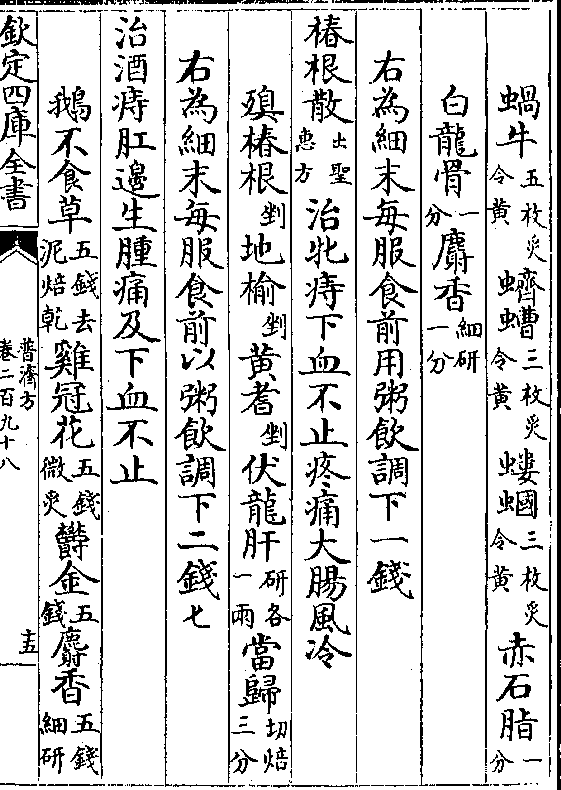 蝸牛五枚炙令黄 蠐螬三枚炙令黄 螻蟈三枚炙令黄 赤石脂一分
白龍骨一分 麝香細研一分
右為細末每服食前用粥飲調下一錢
椿根散出聖惠方 治牝痔下血不止疼痛大腸風冷
臭椿根剉 地榆剉 黄耆剉 伏龍肝研各一兩 當歸切焙三分
右為細末每服食前以粥飲調下二錢七
治酒痔肛邊生腫痛及下血不止
鵝不食草五錢去泥焙乾 雞冠花五錢微炙 欝金五錢 麝香五錢細研
欽定四庫全書
普濟方
卷二百九十八
十五